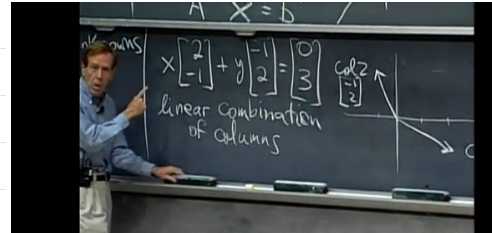 A X = b
x [2 -1] + y [-1 2] = [0 3]
linear combination
of columns
col 2
[-1 2]